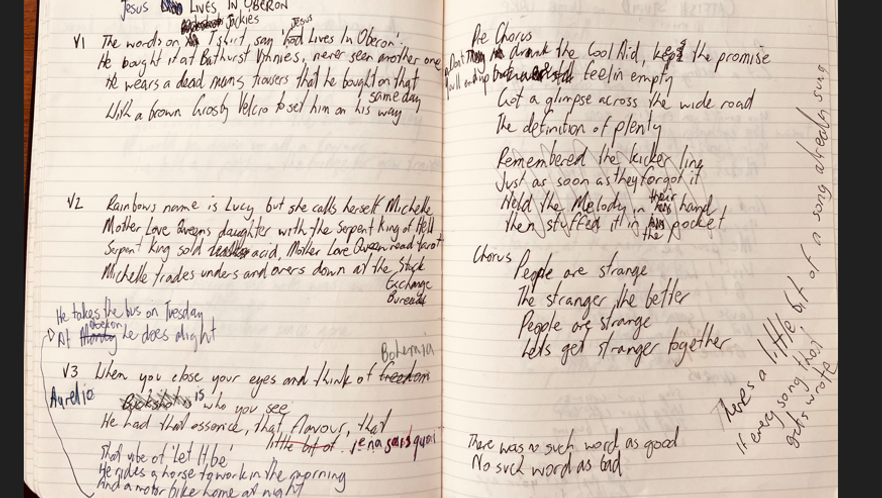 Jesus LIVES IN OBERON
Jackies
V1 The words on T shirt say 'Jesus Lives In Oberon'.
He bought it at Bathurst Vinnies, never seen another one
He wears a dead mans trousers that he bought on that same day
With a brown Crosby Velcro to set him on his way
V2 Rainbows name is Lucy but she calls herself Michelle
Mother Love Queens daughter with the Serpent King of Hell
Serpent King sold acid, Mother Love Queen read tarot
Michelle trades unders and overs down at the Stock
Exchange
Bureau
He takes the bus on Tuesday
At Oberon he does alright
Bohemia
V3 When you close your eyes and think of freedom
Aurelio is who you see
He had that essence, that flavour, that
little bit of je na sais quoi
That vibe of 'Let It be'
He rides a horse to work in the morning
And a motor bike home at night
Pre Chorus
Don't drank the Cool Aid, keep the promise
You'll end up feelin empty
Got a glimpse across the wide road
The definition of plenty
Remembered the kicker line
Just as soon as they forgot it
Held the Melody in their hand
Then stuffed it in the pocket
Chorus
People are strange
The stranger the better
People are strange
Lets get stranger together
There was no such word as good
No such word as bad
There's a little bit of a song already sung
in every song that
gets wrote